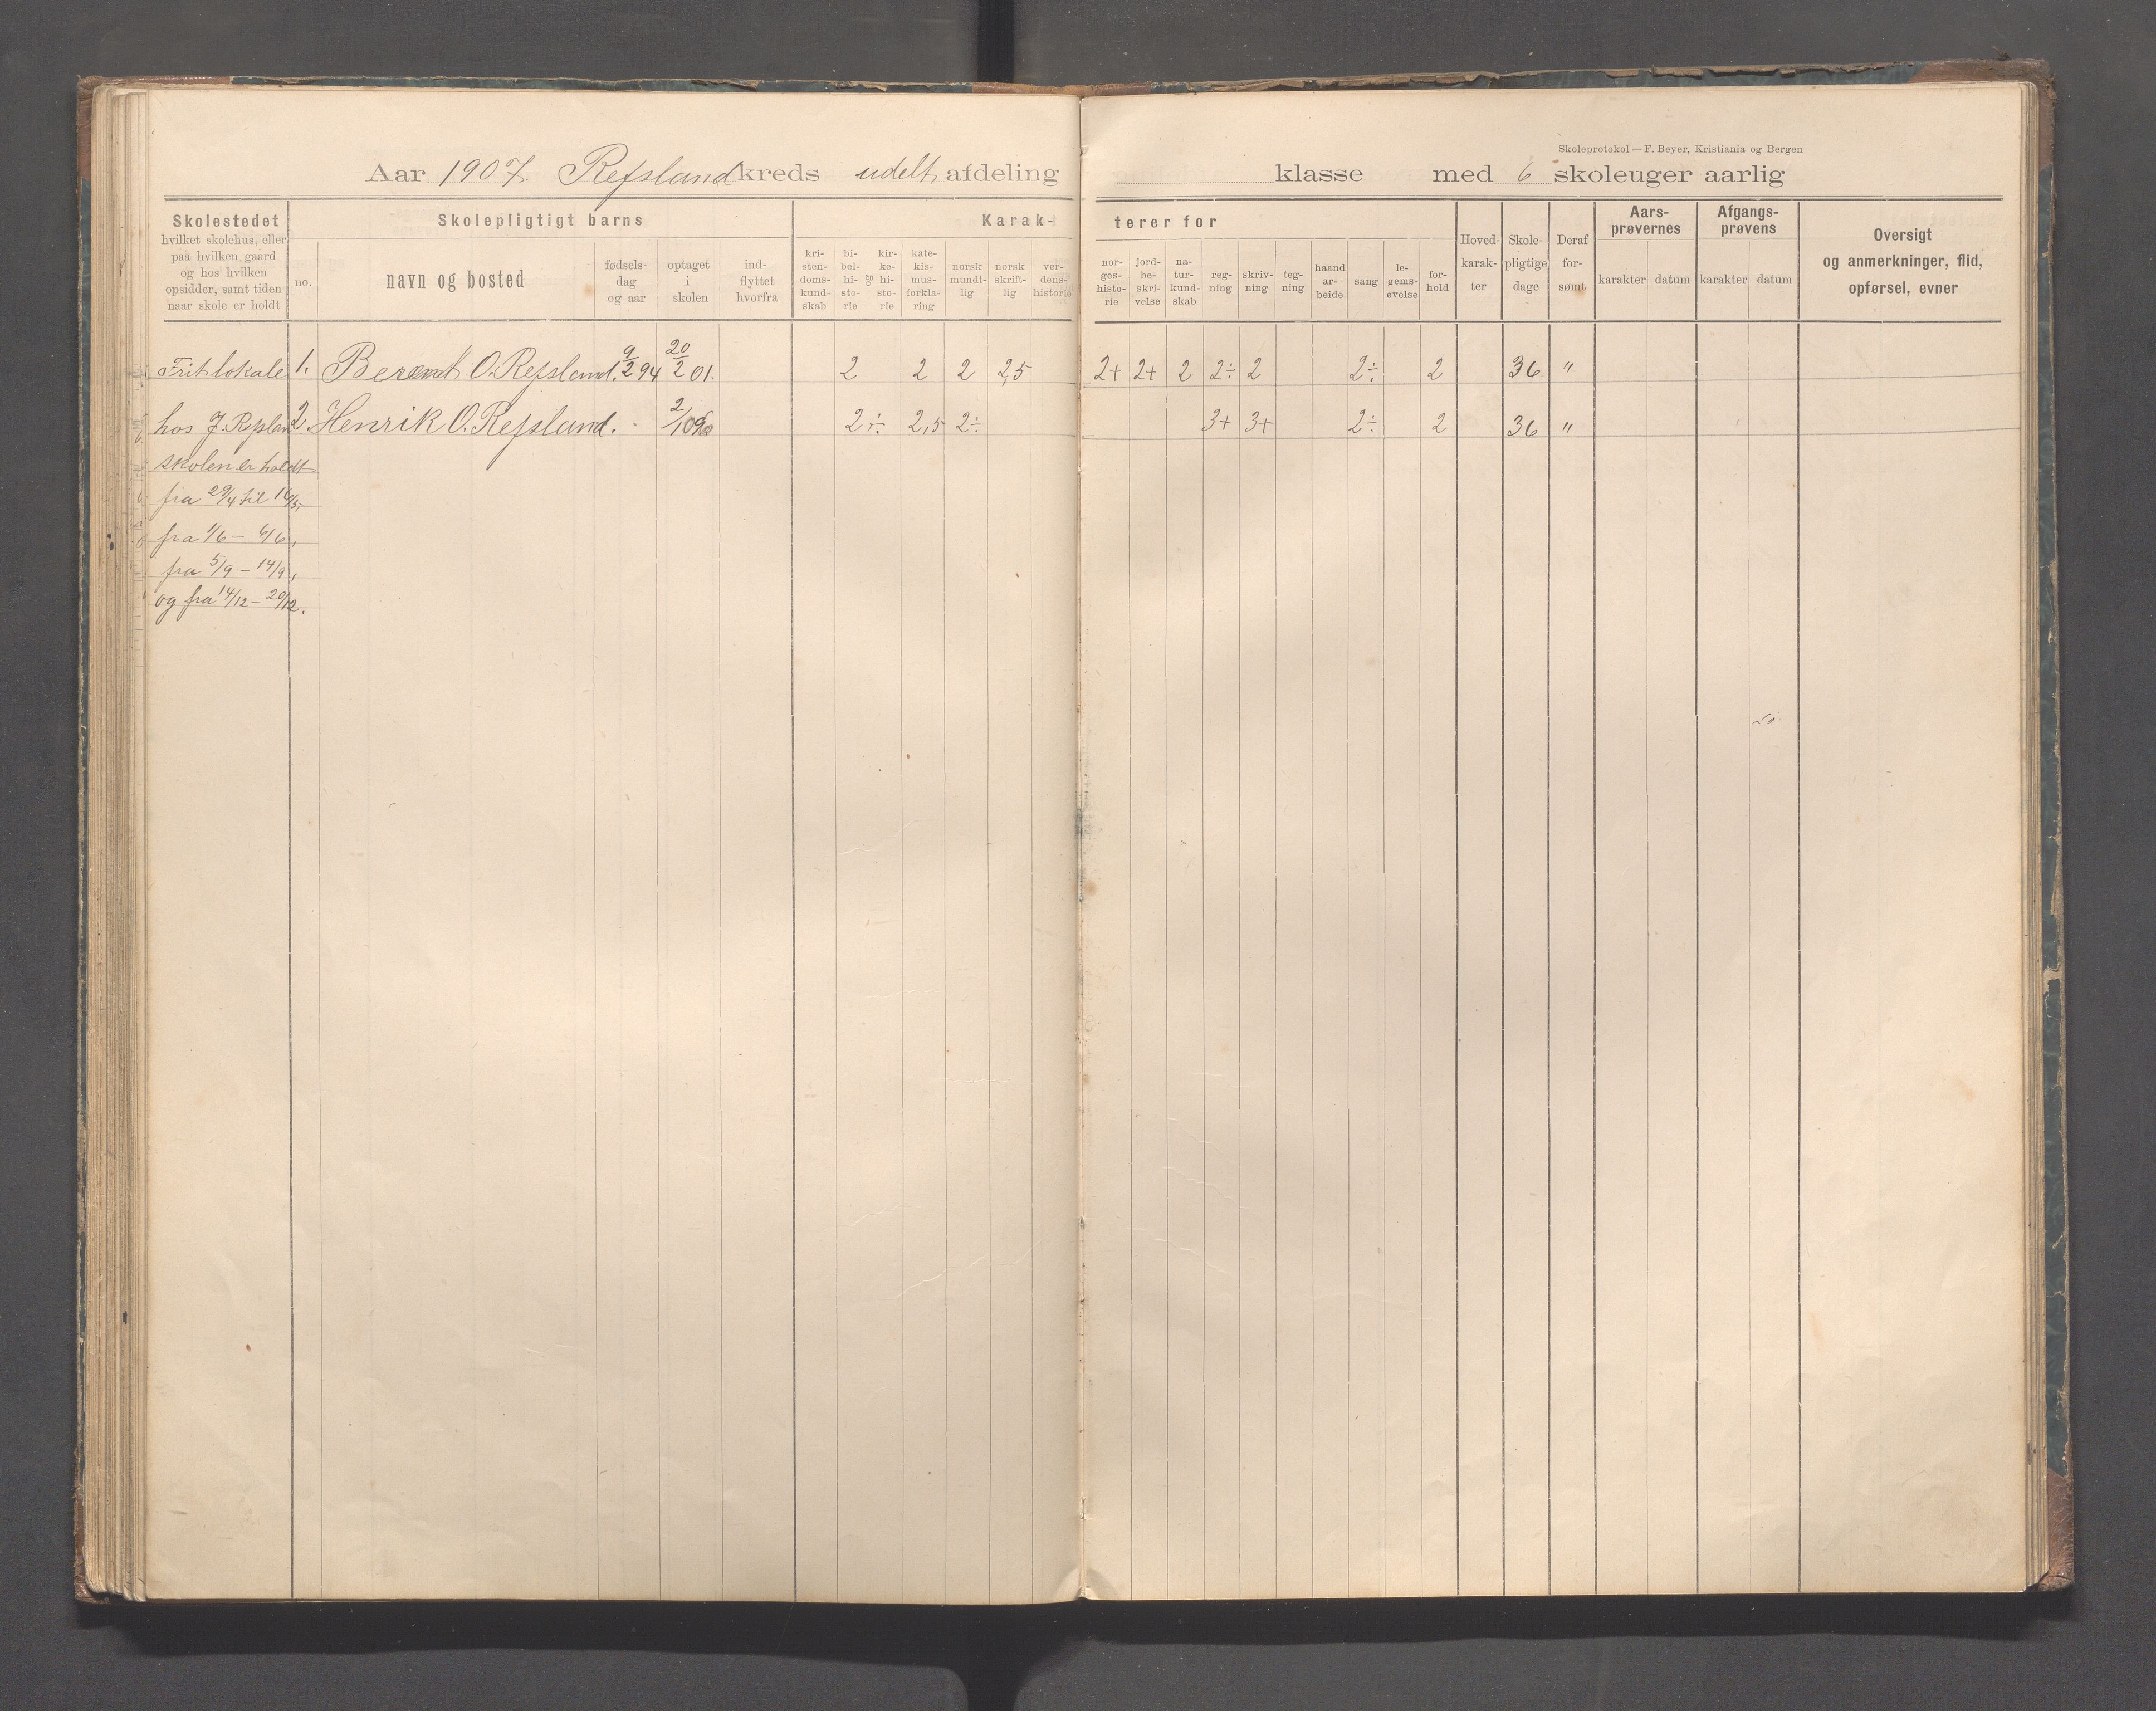 Skoleprotokol — F. Beyer, Kristiania og Bergen
Aar 1907. Refsland kreds udelt afdeling klasse med 6 skoleuger aarlig
Skolestedet
hvilket skolehus, eller
paa hvilken gaard
og hos hvilken
opsidder, samt tiden
naar skole er holdt
Skolepligtigt barns
no.
navn og bosted
fødsels-
dag
og aar
optaget
i
skolen
ind-
flyttet
hvorfra
Karak-
terer for
kri-
sten-
doms-
kund-
skab
bi-
bel-
hi-
sto-
rie
og
kir-
ke-
hi-
sto-
rie
kate-
kis-
mus-
forkla-
ring
norsk
mundt-
lig
norsk
skrift-
lig
ver-
dens-
historie
nor-
ges-
histo-
rie
jord-
be-
skri-
velse
na-
tur-
kund-
skab
reg-
ning
skriv-
ning
teg-
ning
haand
ar-
beide
sang
le-
gems-
øvelse
for-
hold
Hoved-
karak-
ter
Skole-
pligtige
dage
Deraf
for-
sømt
Aars-
prøvernes
karakter datum
Afgangs-
prøvens
karakter datum
Oversigt
og anmerkninger, flid,
opførsel, evner
Frit lokale 1. Berent O. Refsland. 9/2 94 20/2 01. 2 2 2 2,5 2+ 2+ 2 2÷ 2 2÷ 2 36 "
hos J. Refsland 2. Henrik O. Refsland. 2÷ 2,5 2÷ 3+ 3+ 2÷ 2 36 "
skolen er holdt
fra 29/4 til
fra 1/6 – 4/6,
fra 5/9 – 14/9,
og fra 14/12 – 20/12.